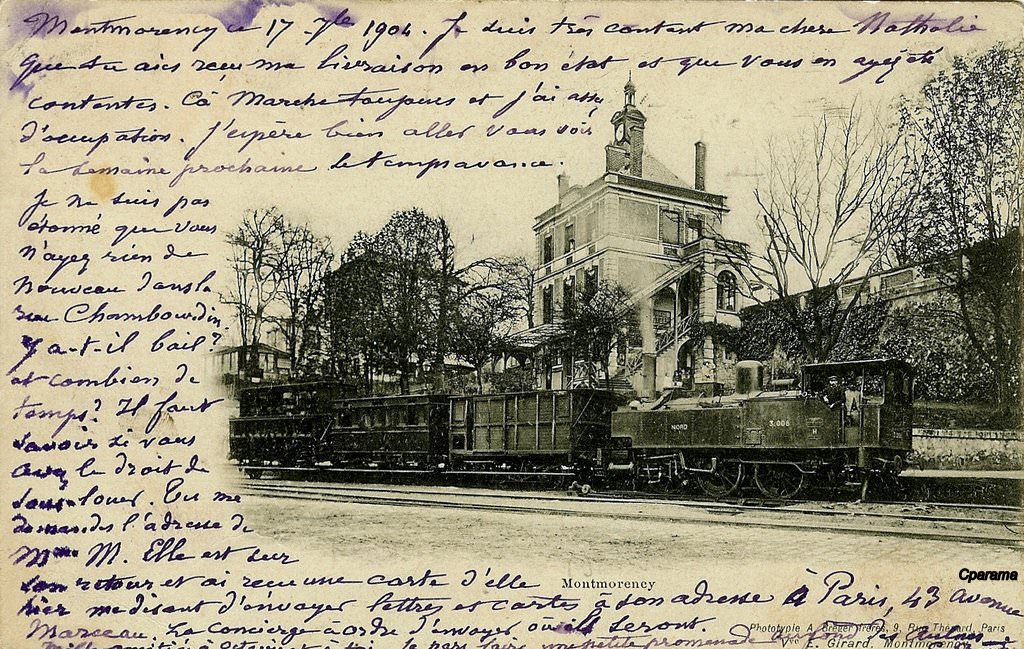 Montmorency le 17 7bre 1904. Je suis très content ma chère Nathalie
que tu aies reçu ma livraison en bon état et que vous en ayez été
contentes. Ca marche toujours et j'ai assez
d'occupation. J'espère bien aller vous voir
la semaine prochaine le temps avance.
Je ne suis pas
étonné que vous
n'ayez rien de
nouveau dans la
rue Chambourdin
Y a-t-il bail?
et combien de
temps? Il faut
savoir si vous
avez le droit de
sous-louer. Tu me
demandes l'adresse de
Mme M. Elle est sur
son retour et ai reçu une carte d'elle
hier me disant d'envoyer lettres et cartes à son adresse à Paris, 43 avenue
Marceau. La concierge à ordre d'envoyer où ils seront.
à toi. Je pars faire une petite promenade
NORD
3.006
Montmorency
Cparama
Phototypie A. Breger frères, 9, Rue Thénard, Paris
Vve E. Girard, Montmorency